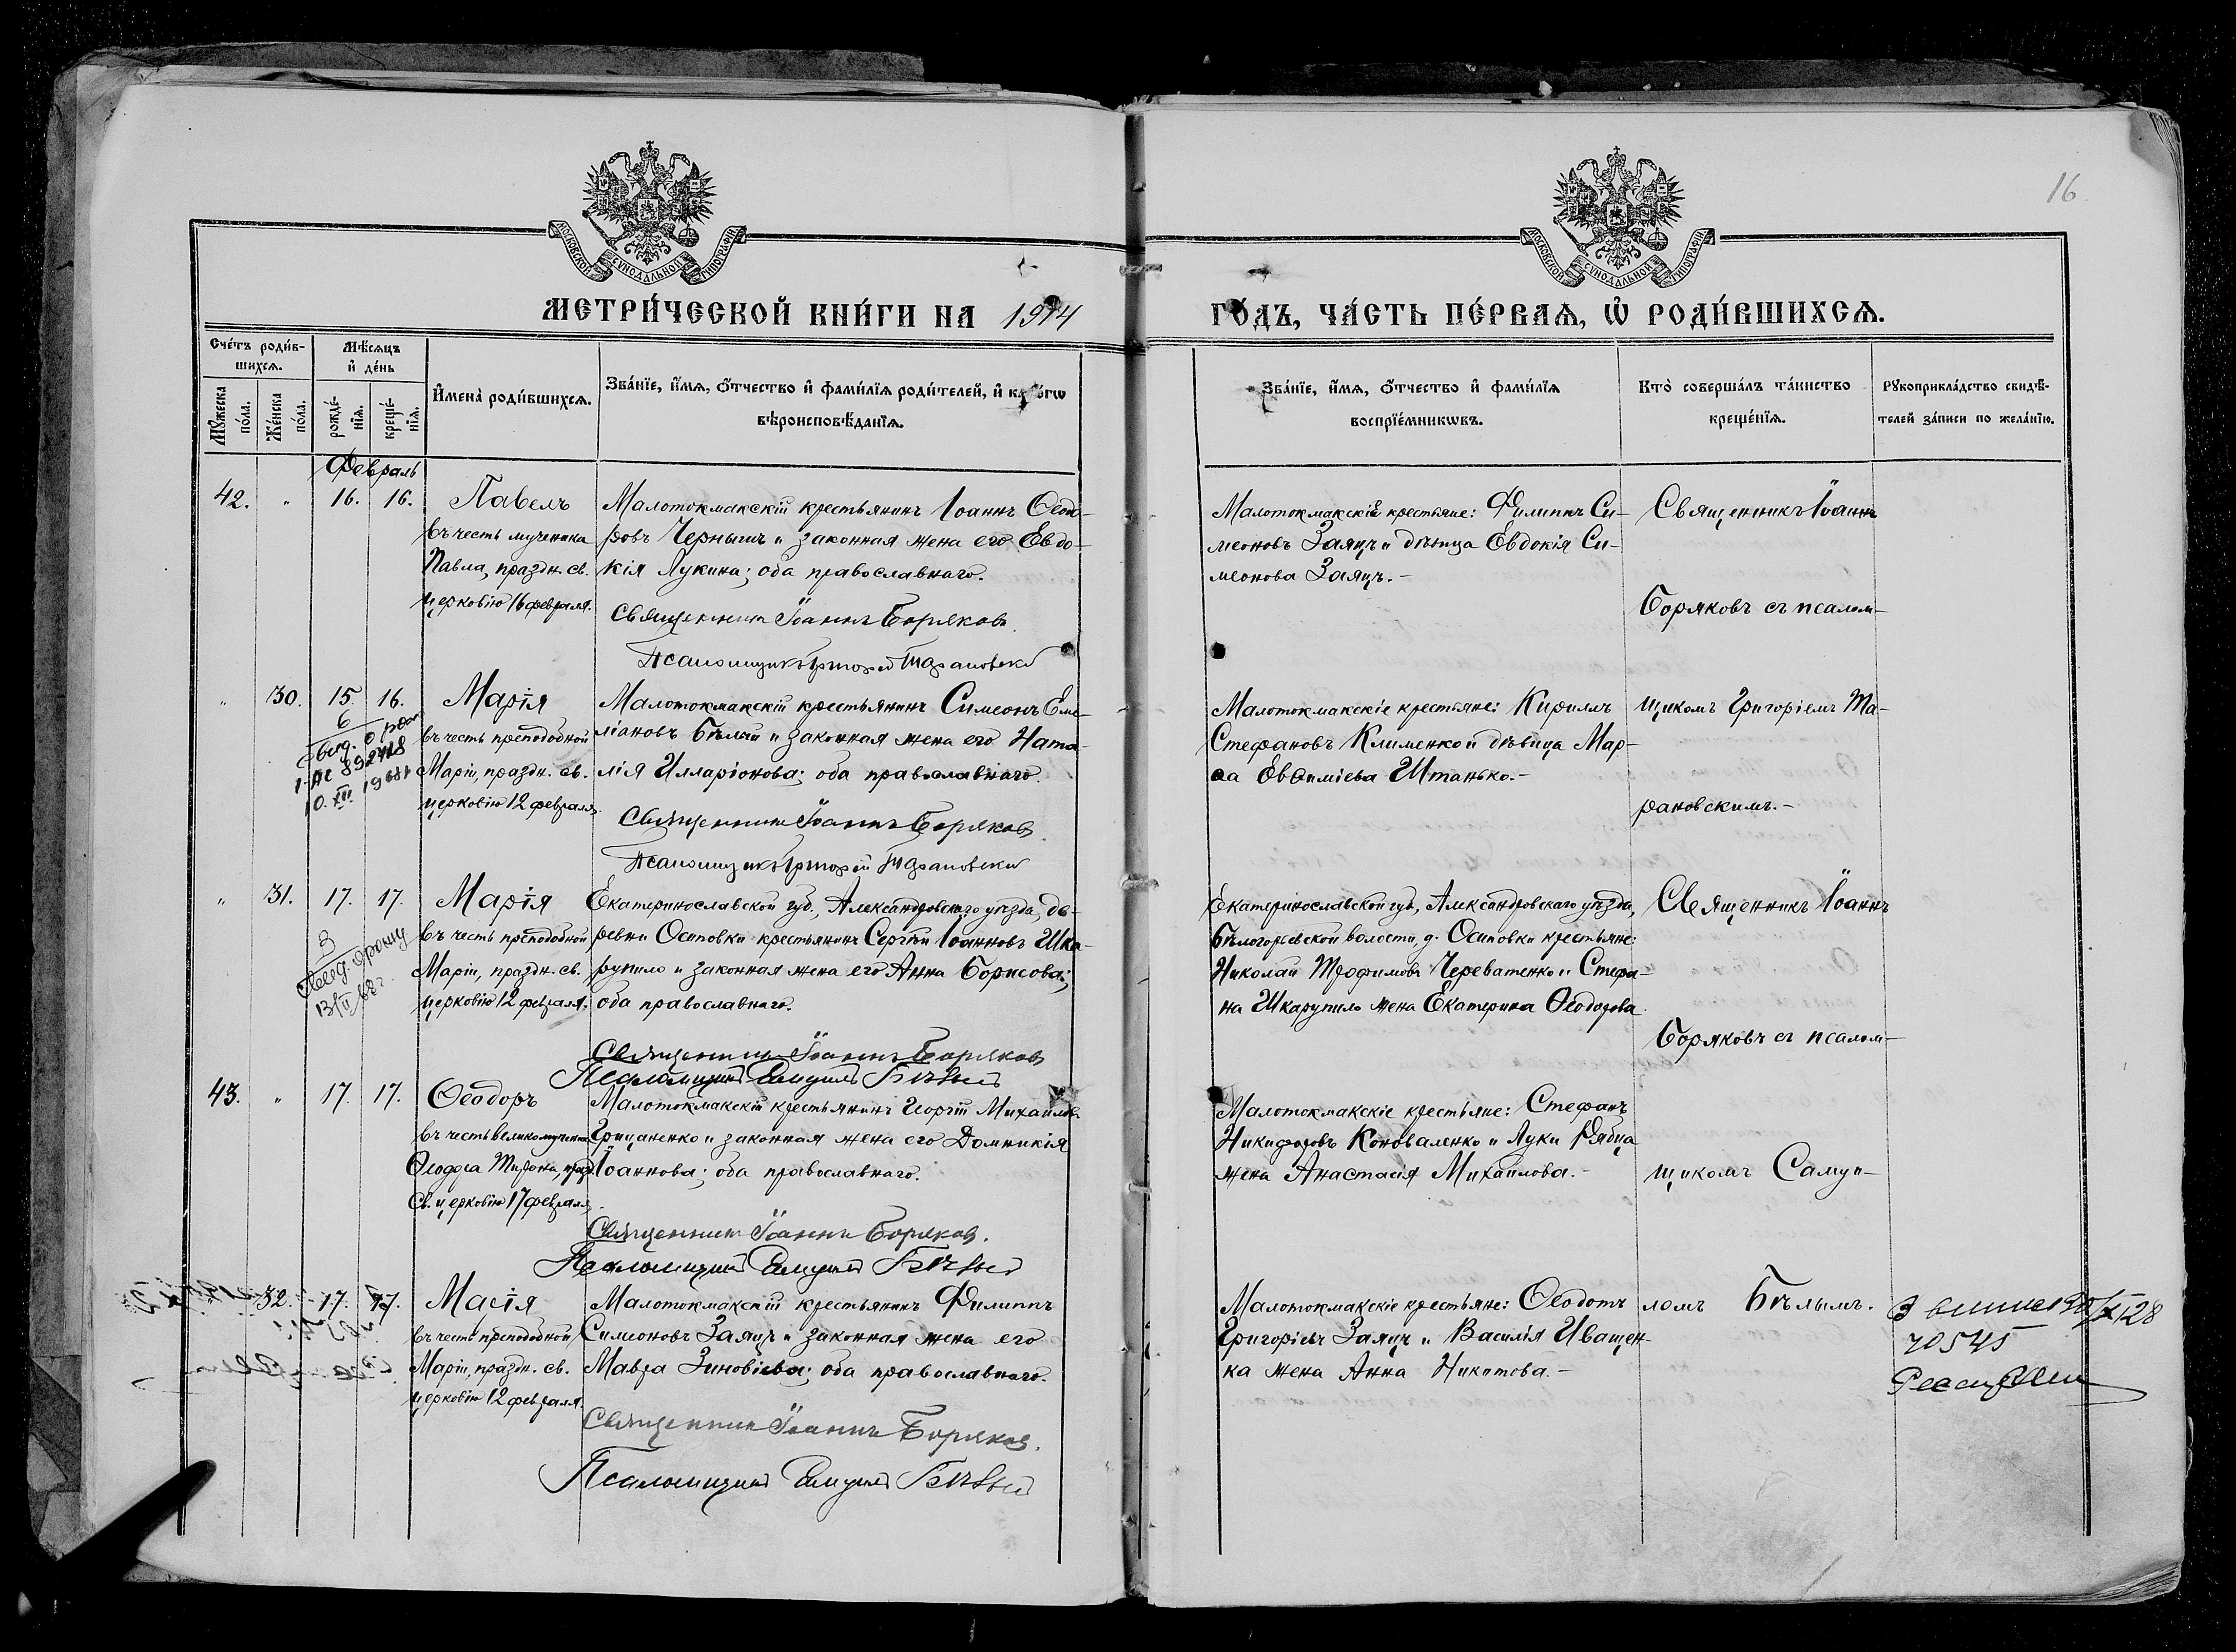 16
МОСКОВСКОЙ СУНОДАЛЬНОЙ ТИПОГРАФІИ
МОСКОВСКОЙ СУНОДАЛЬНОЙ ТИПОГРАФІИ
МЕТРИ́ЧЕСКОЙ КНИ́ГИ НА 1914
ГО́ДЪ, ЧА́СТЬ ПЕ́РВАѦ, Ѡ҆ РОДИ́ВШИХСѦ.
Сче́тъ роди́в-
шихсѧ.
Мѣ́сѧцъ
и҆ де́нь
Мꙋ́жеска
по́ла.
Же́нска
по́ла.
рожде́-
нїѧ.
креще́-
нїѧ.
И҆мена̀ роди́вшихсѧ.
Зва́нїе, и҆́мѧ, ѻ҆́тчество и҆ фами́лїѧ роди́телей, и҆ како́гѡ
вѣроисповѣ́данїѧ.
Зва́нїе, и҆́мѧ, ѻ҆́тчество и҆ фами́лїѧ
воспрїе́мникѡвъ.
Кто̀ соверша́лъ та́инство
креще́нїѧ.
Рꙋкоприкла́дство свидѣ́-
телей за́писи по жела́нїю.
Февраль
42. " 16. 16. Павелъ
въ честь мученика
Павла, праздн. св.
церковію 16 февраля.
Малотокмакскій крестьянинъ Іоаннъ Ѳеодо-
ровъ Чернышъ и законная жена его Евдо-
кія Лукина; оба православнаго.
Священникъ Іоаннъ Боряковъ
Псаломщикъ Григорій Тарановскій
Малотокмакскіе крестьяне: Филиппъ Си-
меоновъ Заяцъ и дѣвица Евдокія Си-
меонова Заяцъ.-
Священникъ Іоаннъ
Боряковъ съ псалом-
" 30. 15. 16. Марія
въ честь преподобной
Маріи, праздн. св.
церковію 12 февраля.
6
10. XII. 1968
Малотокмакскій крестьянинъ Симеонъ Еме-
ліановъ Бѣлый и законная жена его Ната-
лія Илларіонова; оба православнаго.
Священникъ Іоаннъ Боряковъ
Псаломщикъ Григорій Тарановскій
Малотокмакскіе крестьяне: Кириллъ
Стефановъ Клименко и дѣвица Мар-
ѳа Евѳиміева Штанько.-
щикомъ Григоріемъ Та-
рановскимъ.-
" 31. 17. 17. Марія
въ честь преподобной
Маріи, праздн. св.
церковію 12 февраля.
Екатеринославской губ., Александровскаго уѣзда, де-
ревни Осиповки крестьянинъ Сергѣй Іоанновъ Шка-
рупило и законная жена его Анна Борисова;
оба православнаго.
Священникъ Іоаннъ Боряковъ
Псаломщикъ Самуилъ Бѣлый
Екатеринославской губ., Александровскаго уѣзда,
Бѣлогорьевской волости, д. Осиповки крестьяне:
Николай Трофимовъ Череватенко и Стефа-
на Шкарупило жена Екатерина Ѳеодорова.
Священникъ Іоаннъ
Боряковъ съ псалом-
43. " 17. 17. Ѳеодоръ
въ честь великомученика
Ѳеодора Тирона, празд.
св. церковію 17 февраля.
Малотокмакскій крестьянинъ Георгій Михайловъ
Грицаненко и законная жена его Домникія
Іоаннова; оба православнаго.
Священникъ Іоаннъ Боряковъ.
Псаломщикъ Самуилъ Бѣлый
Малотокмакскіе крестьяне: Стефанъ
Никифоровъ Коноваленко и Луки Рябца
жена Анастасія Михайлова.-
щикомъ Самуи-
" 32. 17. 17. Марія
въ честь преподобной
Маріи, праздн. св.
церковію 12 февраля.
Малотокмакскій крестьянинъ Филиппъ
Симеоновъ Заяцъ и законная жена его
Мавра Зиновіева; оба православнаго.
Священникъ Іоаннъ Боряковъ.
Псаломщикъ Самуилъ Бѣлый
Малотокмакскіе крестьяне: Ѳеодотъ
Григорьевъ Заяцъ и Василія Иващен-
ка жена Анна Никитова.-
ломъ Бѣлымъ.
70545